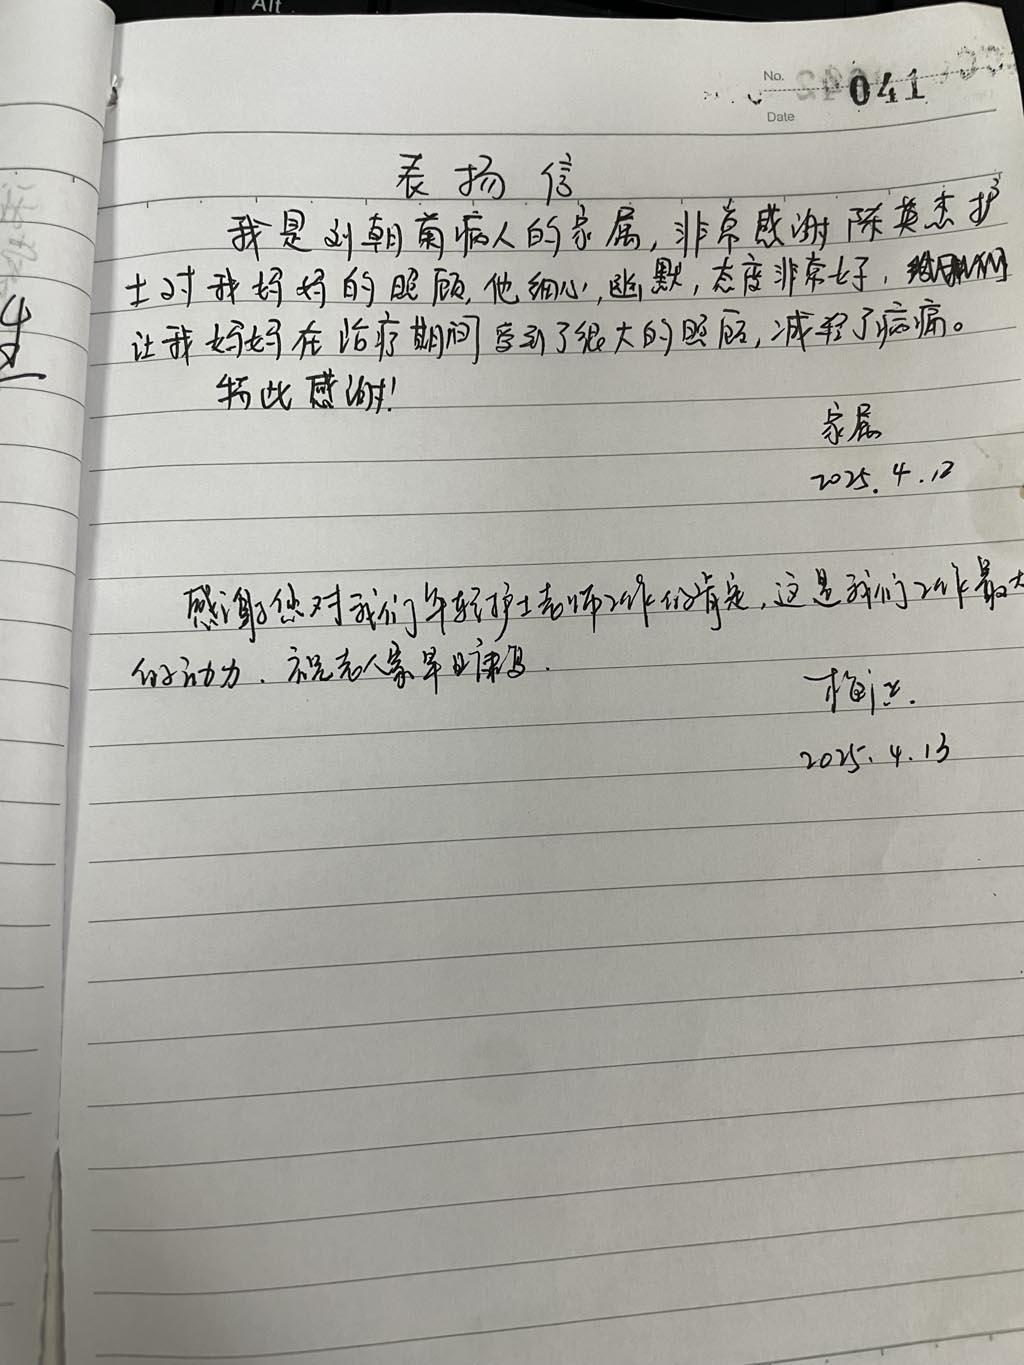 Alt
No. 041
Date
表扬信
我是刘朝菊病人的家属,非常感谢陈英杰护
士对我妈妈的照顾,他细心,幽默,态度非常好,
让我妈妈在治疗期间受到了很大的照顾,减轻了病痛。
特此感谢!
家属
2025.4.12
感谢您对我们年轻护士老师工作的肯定,这是我们工作最大
的动力.祝老人家早日康复.
2025.4.13